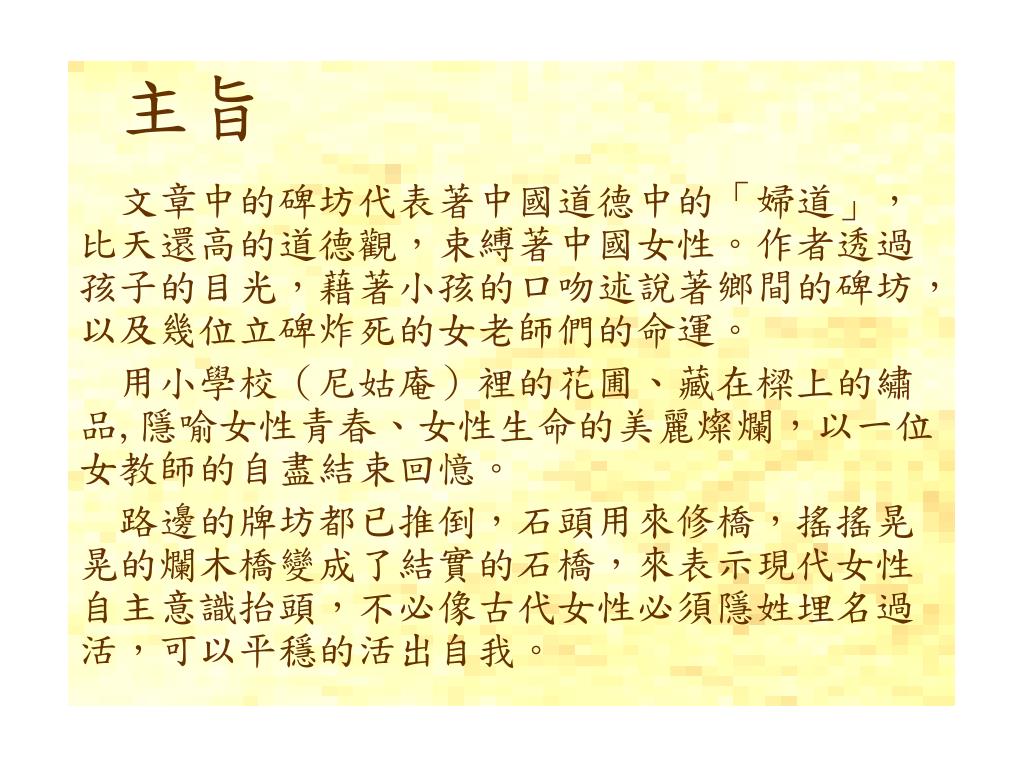 主旨
文章中的碑坊代表著中國道德中的「婦道」，
比天還高的道德觀，束縛著中國女性。作者透過
孩子的目光，藉著小孩的口吻述說著鄉間的碑坊，
以及幾位立碑炸死的女老師們的命運。
用小學校（尼姑庵）裡的花圃、藏在樑上的繡
品,隱喻女性青春、女性生命的美麗燦爛，以一位
女教師的自盡結束回憶。
路邊的牌坊都已推倒，石頭用來修橋，搖搖晃
晃的爛木橋變成了結實的石橋，來表示現代女性
自主意識抬頭，不必像古代女性必須隱姓埋名過
活，可以平穩的活出自我。